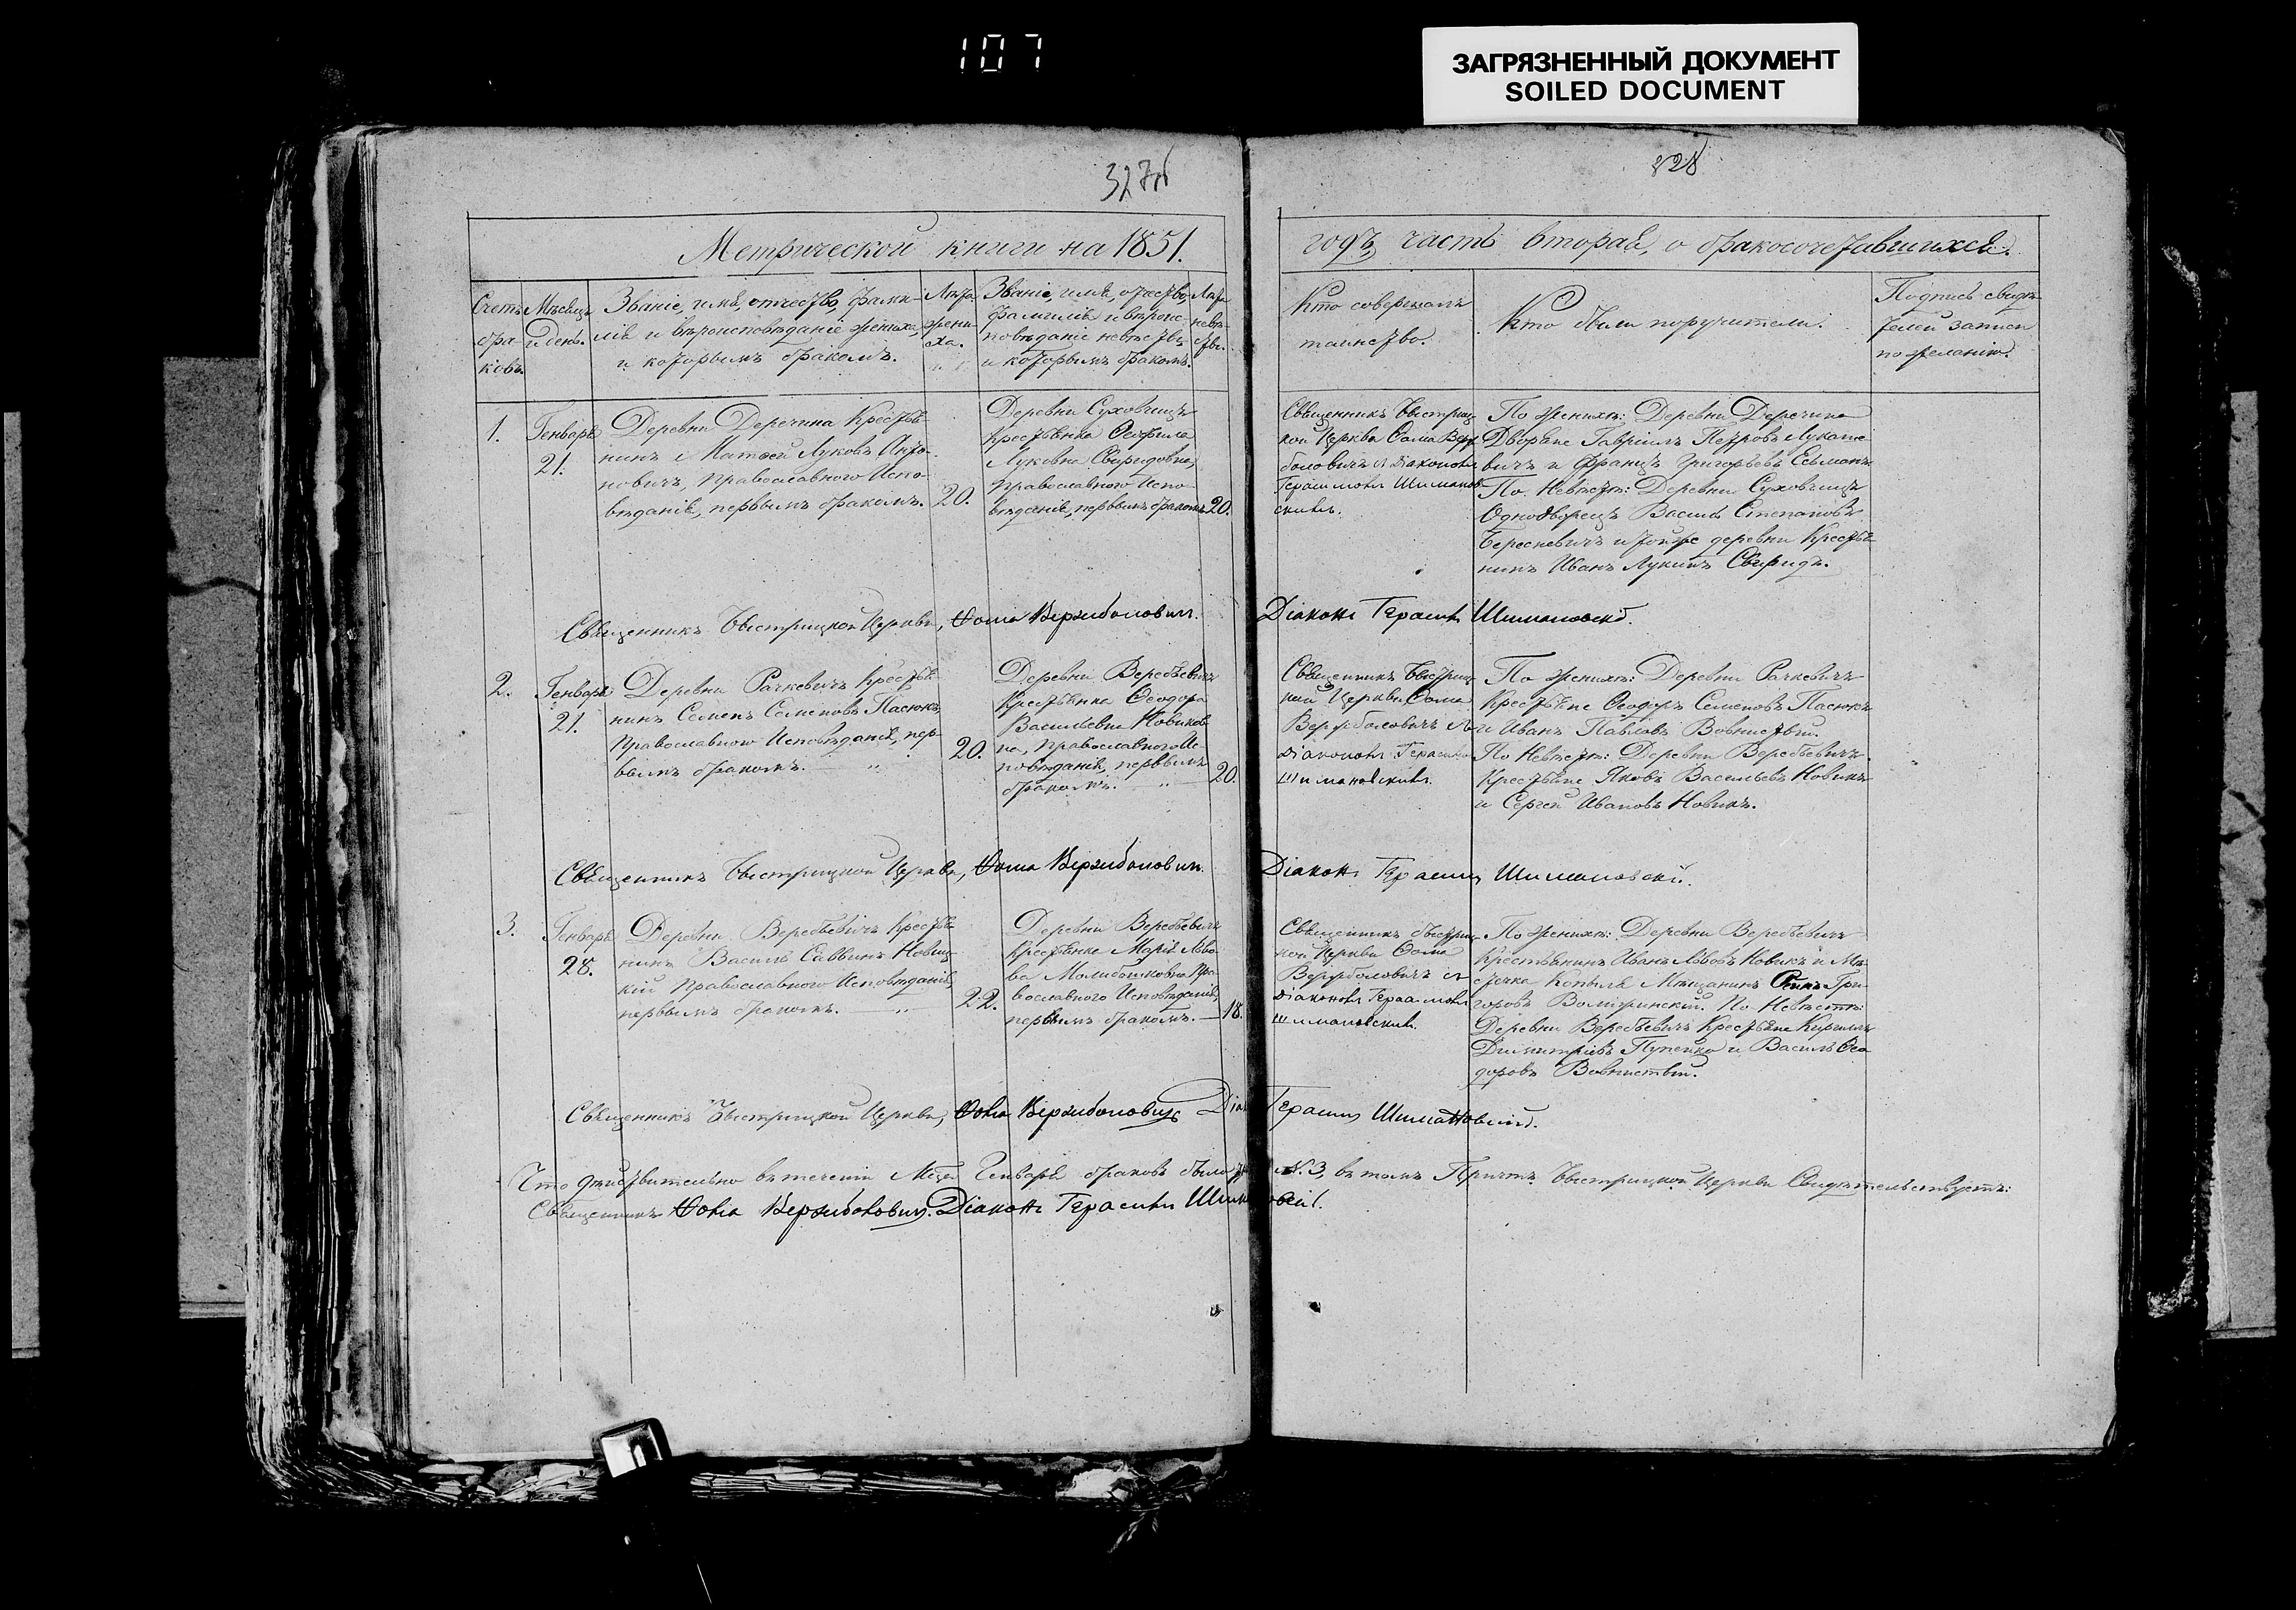 107
ЗАГРЯЗНЕННЫЙ ДОКУМЕНТ
SOILED DOCUMENT
327
328
Метрической книги на 1851.
годъ, часть вторая, о бракосочетавшихся.
Счетъ браковъ.
Мѣсяцъ и день.
Званіе, имя, отчество, фами-
лія и вѣроисповѣданіе жениха,
и которымъ бракомъ.
Лѣта
жени-
ха.
Званіе, имя, отчество,
фамилія и вѣроис-
повѣданіе невѣсты,
и которымъ бракомъ.
Лѣта
невѣ-
сты.
Кто совершалъ
таинство.
Кто были поручители.
Подпись свидѣ-
телей записи
по желанію.
1.
Генваря
21.
Деревни Деречина Крестья-
нинъ Матѳей Луковъ Анто-
новичъ, Православнаго Испо-
вѣданія, первымъ бракомъ.
20.
Деревни Суховчицъ
Крестьянка
Луквна Свиридовна,
Православнаго Испо-
вѣданія, первымъ бракомъ
20.
Священникъ Быстриц-
кой Церкви Ѳома Верж-
боловичъ съ Діакономъ
Герасимомъ Шиманов-
скимъ.
По женихѣ: Деревни Деречина
Дворяне Гавріилъ Петровъ Лукаше
вичъ и Францъ Григорьевъ Есьманъ.
По Невѣстѣ: Деревни Суховчицъ
Однодворецъ Василь Степановъ
Бересневичъ и тойже деревни Крестья
нинъ Иванъ Лукинъ Свиридъ.
Священникъ Быстрицкой Церкви, Ѳома Вержболовичъ.
Діаконъ Герасимъ Шимановскій.
2.
Генваря
21.
Деревни Рачкевичъ Крестья-
нинъ Семенъ Семеновъ Пасюкъ,
Православнаго Исповѣданія, пер-
вымъ бракомъ.
20.
Деревни Веребьевичъ
Крестьянка Ѳеодора
Васильевна Новиков-
на, Православнаго Ис-
повѣданія, первымъ
бракомъ.
20.
Священникъ Быстриц
кой Церкви Ѳома
Вержболовичъ съ
Діакономъ Герасимомъ
Шимановскимъ.
По женихѣ: Деревни Рачкевичъ
Крестьяне Ѳеодоръ Семеновъ Пасюкъ
и Иванъ Павловъ
По Невѣстѣ: Деревни Веребьевичъ
Крестьяне Яковъ Васильевъ Новикъ
и Сергей Ивановъ Новикъ.
Священникъ Быстрицкой Церкви, Ѳома Вержболовичъ.
Діаконъ Герасимъ Шимановскій.
3.
Генваря
28.
Деревни Веребьевичъ Крестья-
нинъ Василь Саввинъ Новиц-
кій Православнаго Исповѣданія,
первымъ бракомъ.
22.
Деревни Веребьевичъ
Крестьянка Марія Льво-
ва Пра-
вославнаго Исповѣданія,
первымъ бракомъ.
18.
Священникъ Быстриц-
кой Церкви Ѳома
Вержболовичъ съ
Діакономъ Герасимомъ
Шимановскимъ.
По женихѣ: Деревни Веребьевичъ
Крестьянинъ Иванъ Львовъ Новикъ и Мѣ-
стечка Копыля Мѣщанинъ Гри-
горовъ По Невѣстѣ:
Деревни Веребьевичъ Крестьяне Кирилъ
Димитріевъ Пупейко и Василь Ѳео
доровъ
Священникъ Быстрицкой Церкви, Ѳома Вержболовичъ Діак. Герасимъ Шимановскій.
Что дѣйствительно въ теченіи Мца Генваря браковъ было N. 3, въ томъ Причтъ Быстрицкой Церкви Свидѣтельствуетъ:
Священникъ Ѳома Вержболовичъ. Діаконъ Герасимъ Шимановскій.